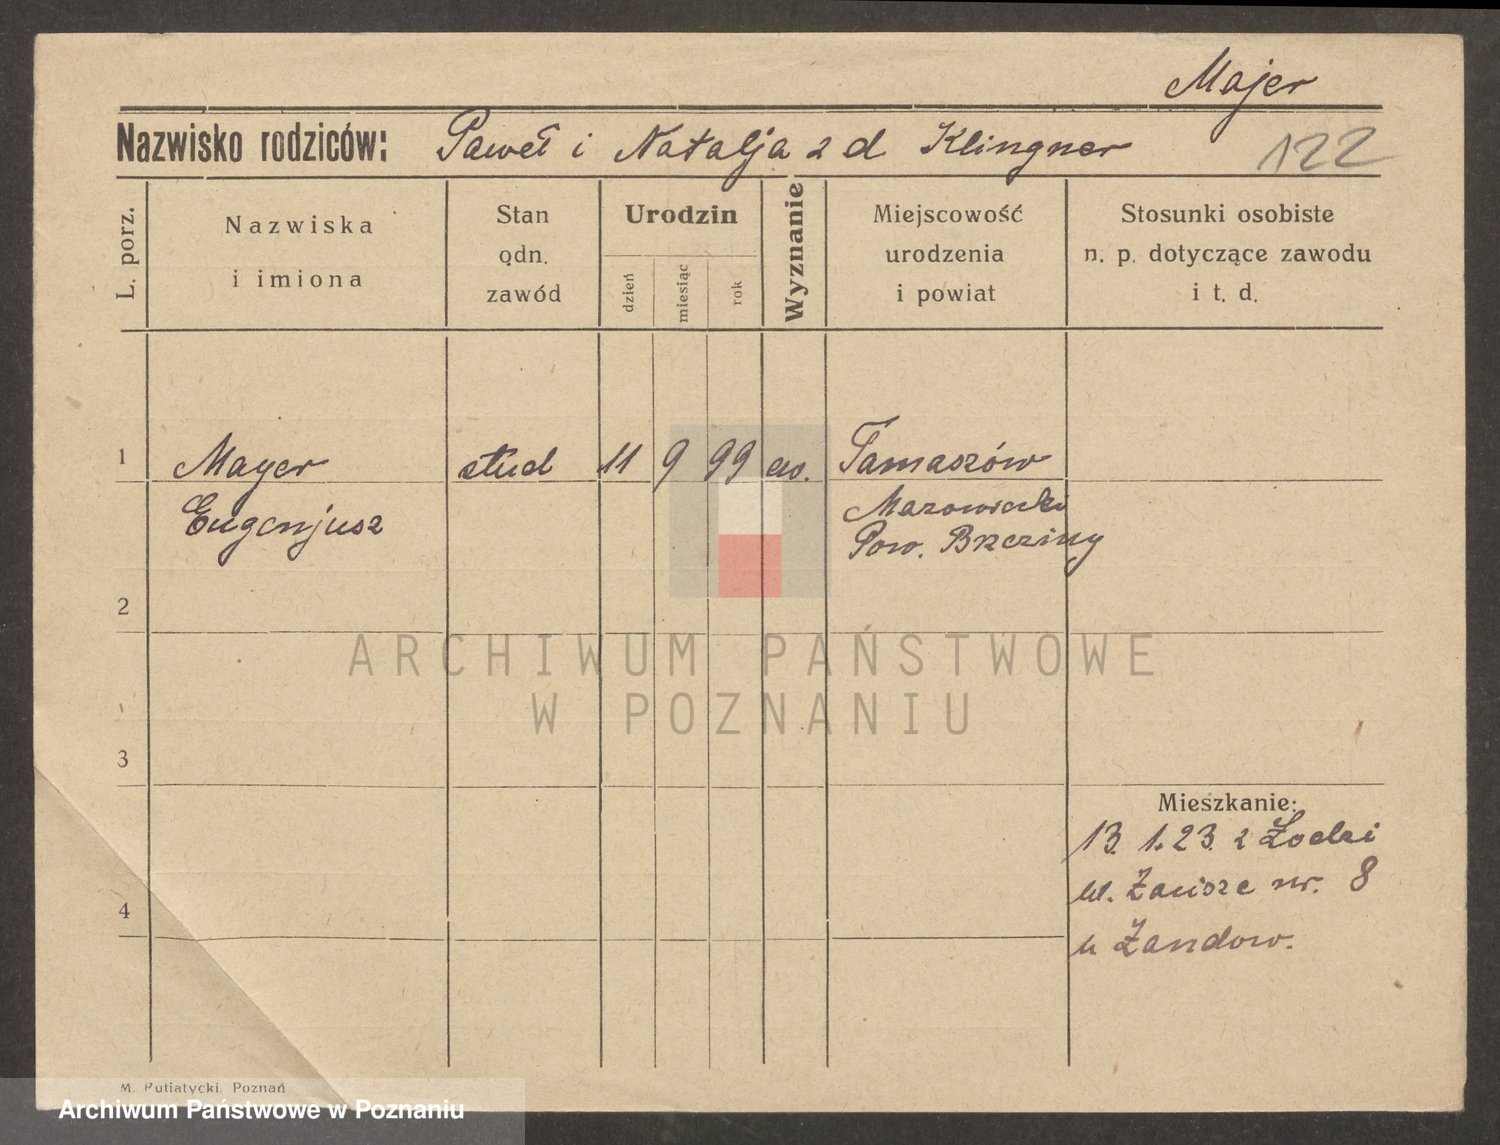 Majer
Nazwisko rodziców: Paweł i Natalja z d Klingner
122
L. porz.
Nazwiska
i imiona
Stan
odn.
zawód
Urodzin
dzień
miesiąc
rok
Wyznanie
Miejscowość
urodzenia
i powiat
Stosunki osobiste
n. p. dotyczące zawodu
i t. d.
1 Mayer stud 11 9 99 ew. Tamaszów
Eugenjusz Mazowiecki
Pow. Brzeziny
2
ARCHIWUM PAŃSTWOWE
W POZNANIU
3
Mieszkanie:
13. 1. 23. z Łodzi
ul. Zacisze nr. 8
4
u Żandow.
M. Putiatycki, Poznań
Archiwum Państwowe w Poznaniu